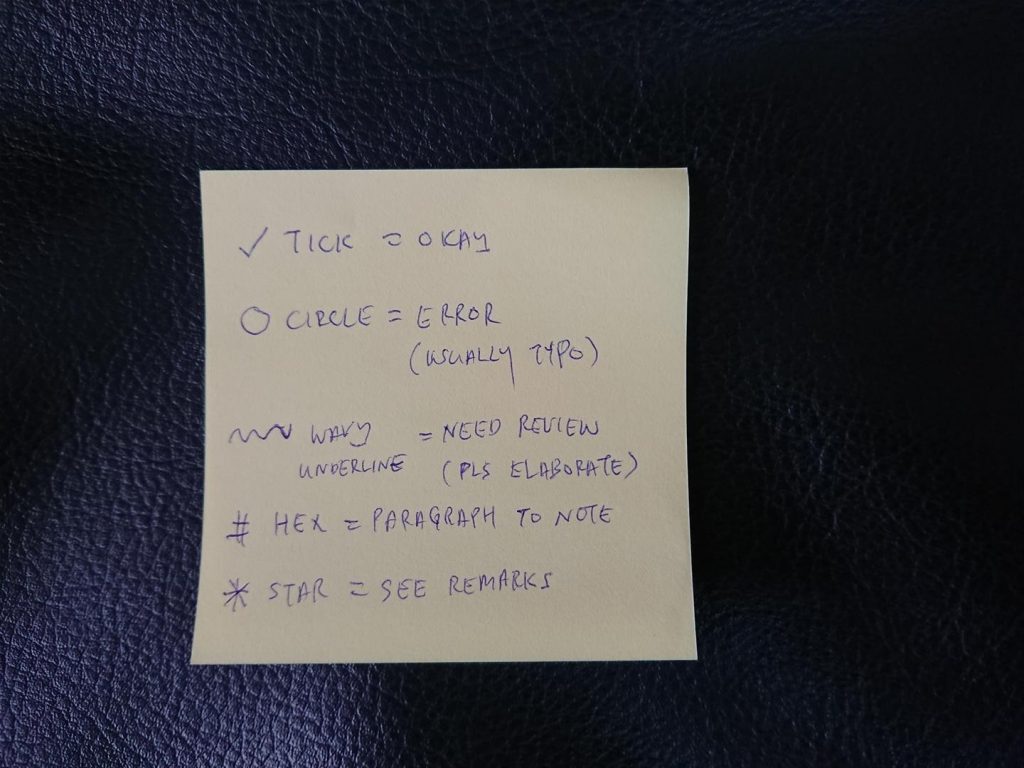 ✓ TICK = OKAY
○ CIRCLE = ERROR
(USUALLY TYPO)
~~~ WAVY = NEED REVIEW
UNDERLINE (PLS ELABORATE)
# HEX = PARAGRAPH TO NOTE
* STAR = SEE REMARKS